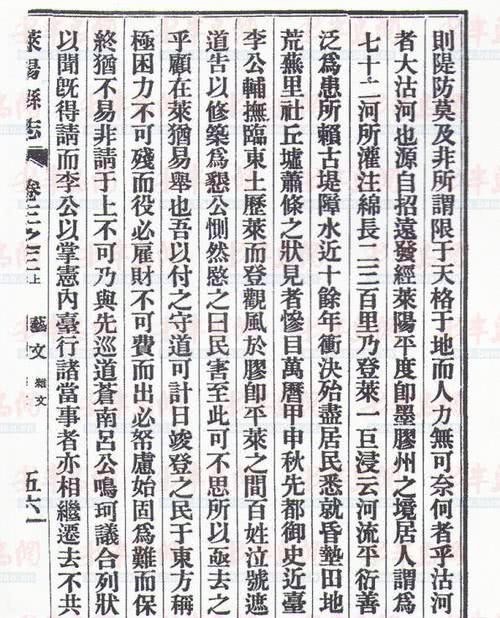 則隄防莫及非所謂限于天格于地而人力無可奈何者乎沽河
者大沽河也源自招遠發經萊陽平度卽墨膠州之境居人謂爲
七十二河所灌注綿長二三百里乃登萊一巨浸云河流平衍善
泛爲患所賴古堤障水近十餘年衝決殆盡居民悉就昏墊田地
荒蕪里社丘墟蕭條之狀見者慘目萬曆甲申秋先都御史近臺
李公輔撫臨東土歷萊而登觀風於膠卽平萊之間百姓泣號遮
道告以修築爲懇公惻然愍之曰民害至此可不思所以亟去之
乎顧在萊猶易舉也吾以付之守道可計日竣登之民于東方稱
極困力不可殘而役必雇財不可費而出必帑慮始固爲難而保
終猶不易非請于上不可乃與先巡道蒼南呂公鳴珂議合列狀
以聞旣得請而李公以掌憲內臺行諸當事者亦相繼遷去不共
萊陽縣志 卷三之三上 藝文 雜文 五六